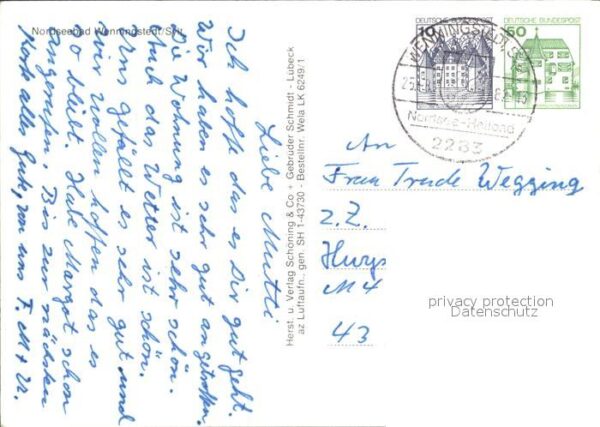 Nordseebad Wenningstedt/Sylt
Liebe Mutti
Ich hoffe das es Dir gut geht.
Wir haben es sehr gut angetroffen.
Die Wohnung ist sehr schön.
Auch das Wetter ist schön.
Uns gefällt es sehr gut und
wir wollen hoffen das es
so bleibt. Habe Margot schon
angerufen. Bis zur nächsten
Karte alles Gute, von uns T. M + U.
Herst. u. Verlag Schöning & Co + Gebrüder Schmidt - Lübeck
az Luftaufn., gen. SH 1-43730 - Bestellnr. Wela LK 6249/1
DEUTSCHE BUNDESPOST
10
DEUTSCHE BUNDESPOST
50
WENNINGSTEDT
Nordsee-Heilbad
2283
An
Frau Trude Wegging
z.Z.
M 4
43
privacy protection
Datenschutz